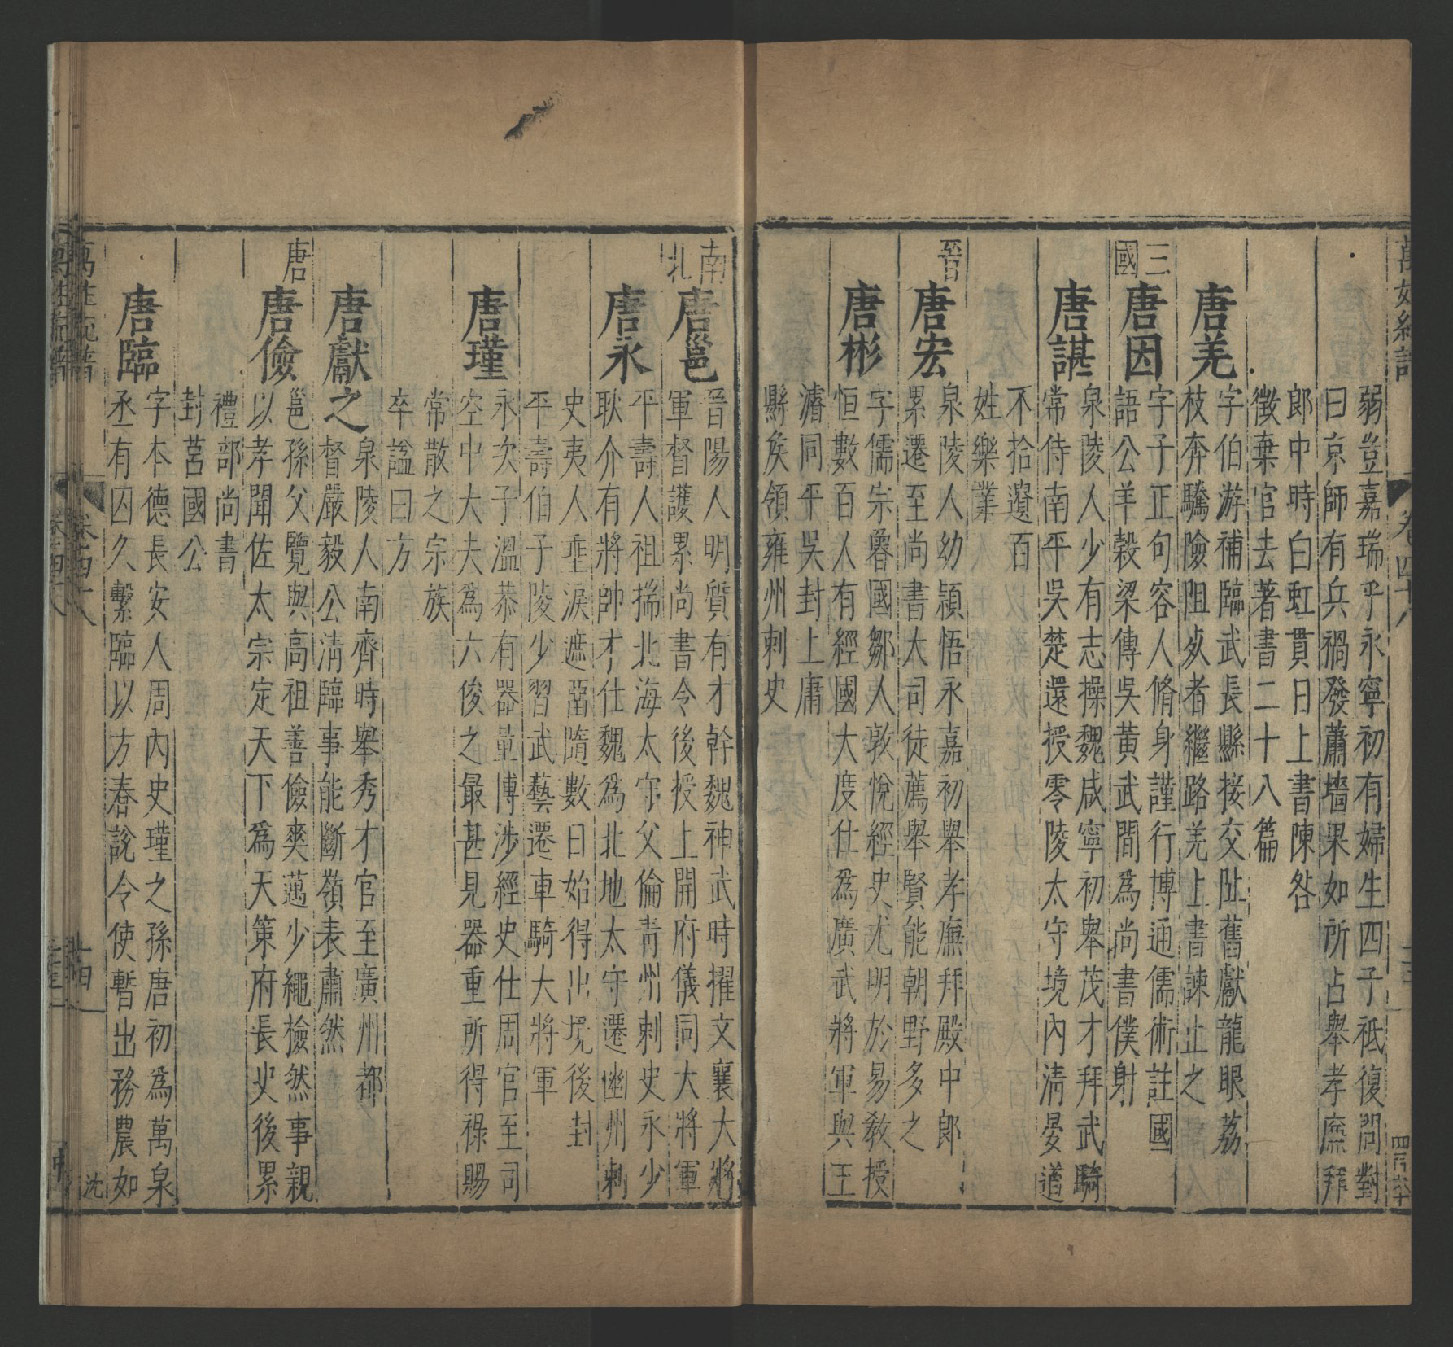 弱豈嘉瑞乎永寧初有婦生四子祗復問對
曰京師有兵禍發蕭墻果如所占舉孝廉拜
郎中時白虹貫日上書陳咎
徵棄官去著書二十八篇
唐羌字伯游補臨武長縣接交阯舊獻龍眼荔
枝奔騰險阻死者繼路羌上書諫止之
三國
唐因字子正句容人脩身謹行博通儒術註國
語公羊穀梁傳吳黃武間為尚書僕射
唐諶泉陵人少有志操魏咸寧初舉茂才拜武騎
常侍南平吳楚還授零陵太守境內清晏道
不拾遺百
姓樂業
晉
唐宏泉陵人幼穎悟永嘉初舉孝廡拜殿中郎
累遷至尚書大司徒薦舉賢能朝野多之
唐彬字儒宗魯國鄒人敦悅經史尤明於易教授
恒數百人有經國大度仕為廣武將軍與王
濬同平吳封上庸
縣矦領雍州刺史
南北
唐邕晉陽人明質有才幹魏神武時擢文襄大將
軍督護累尚書令後授上開府儀同大將軍
唐永平壽人祖揣北海太守父倫青州刺史永少
耿介有將帥才仕魏為北地太守遷幽州刺
史夷人垂淚遮畱隨數日始得出境後封
平壽伯子陵少習武藝遷車騎大將軍
唐瑾永次子溫恭有器量博涉經史仕周官至司
空中大夫為六俊之最甚見器重所得祿賜
常散之宗族
卒諡曰方
唐獻之泉陵人南齊時舉秀才官至廣州都
督嚴毅公清臨事能斷嶺表肅然
唐
唐儉邕孫父覽與高祖善儉爽邁少繩檢然事親
以孝聞佐太宗定天下為天策府長史後累
禮部尚書
封莒國公
唐臨字本德長安人周內史瑾之孫唐初為萬泉
丞有囚久繫臨以方春說令使暫出務農如
萬姓統譜
卷四十八
沈